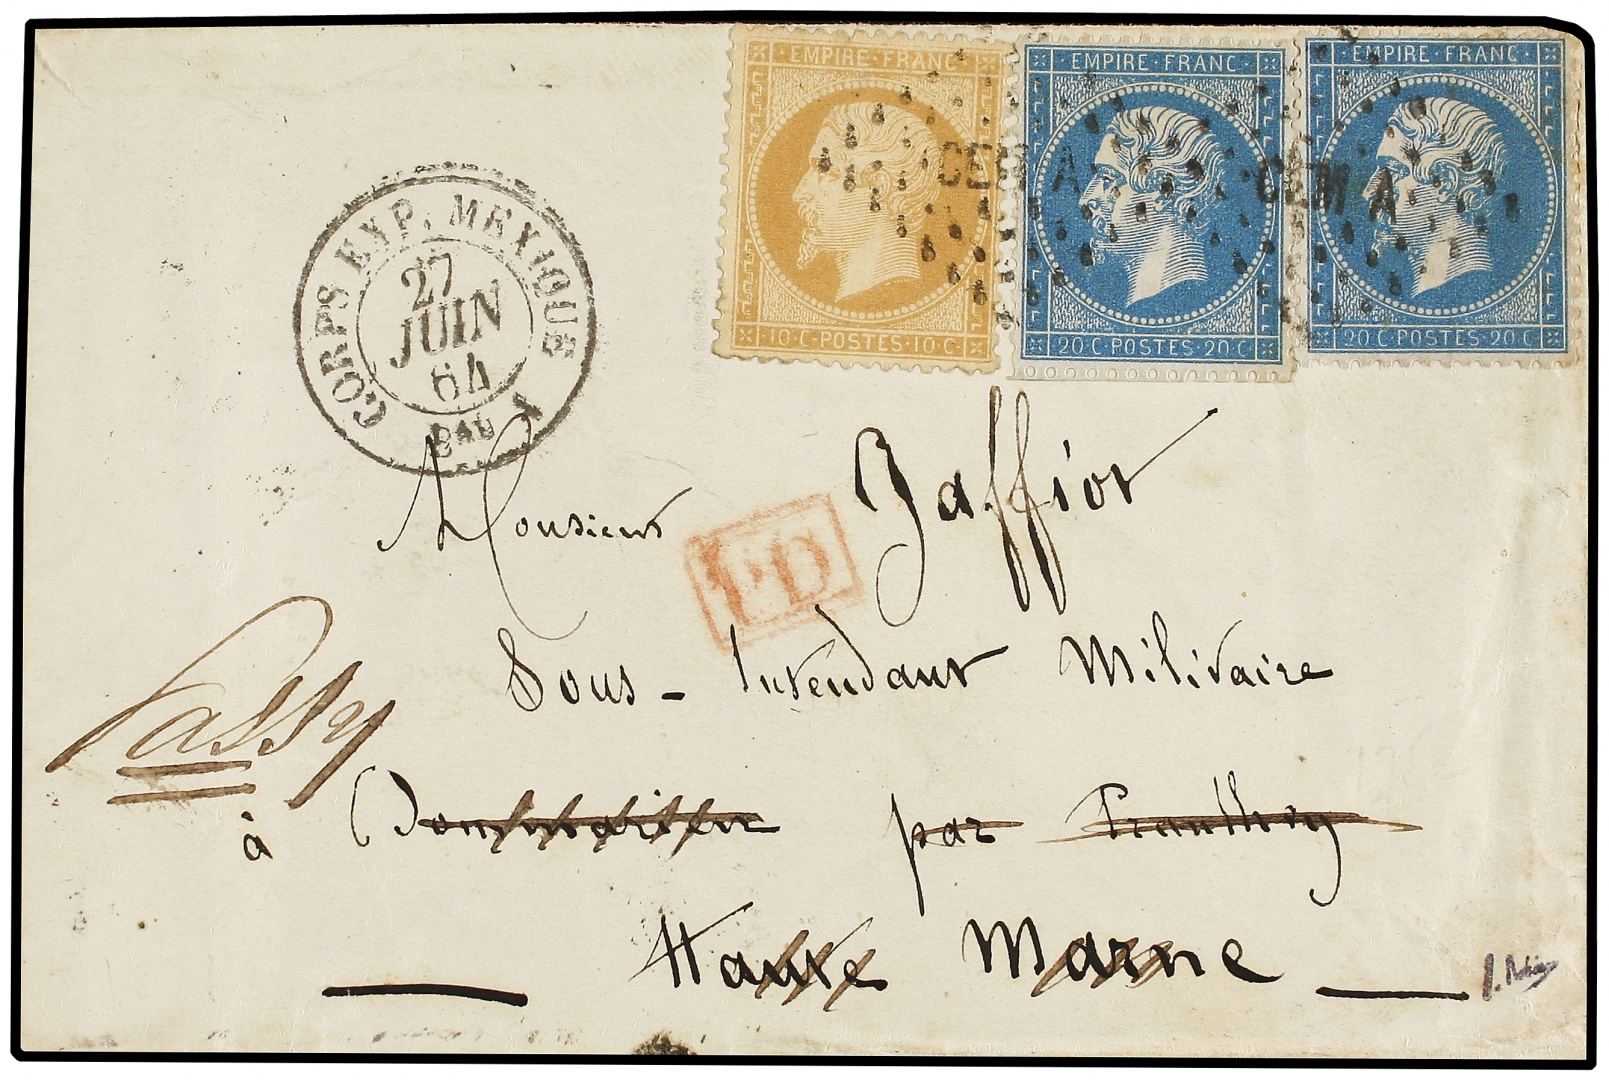 EMPIRE·FRANC·
10·C·POSTES·10·C·
EMPIRE·FRANC·
20·C·POSTES·20·C·
EMPIRE·FRANC·
20·C·POSTES·20·C·
CEM A
CEM A
CORPS EXP. MEXIQUE
27
JUIN
64
Bau A
Monsieur Jaffiot
PD
Sous-Intendant Militaire
Passy
à Dommarien par Prauthoy
Haute Marne